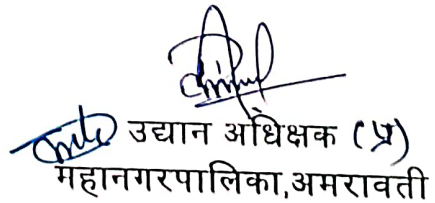 उद्यान अधिक्षक (प्र)
महानगरपालिका,अमरावती